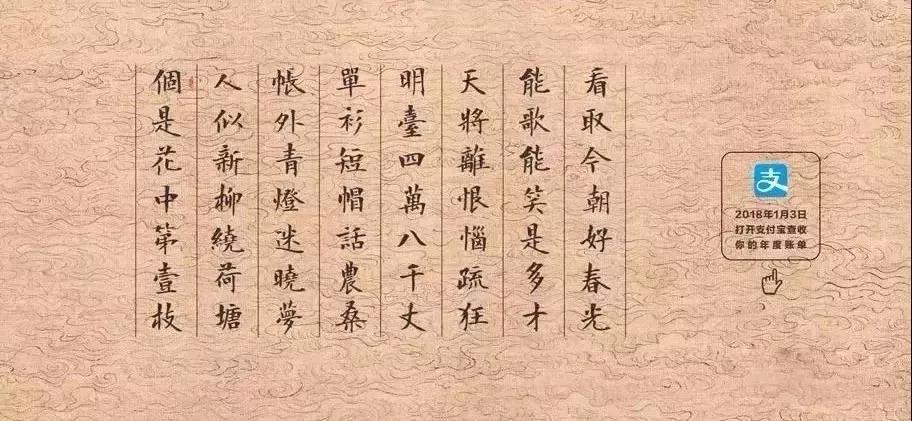 看取今朝好春光
能歌能笑是多才
天將離恨惱疏狂
明臺四萬八千丈
單衫短帽話農桑
帳外青燈迷曉夢
人似新柳繞荷塘
個是花中第壹枝
支
2018年1月3日
打开支付宝查收
你的年度账单